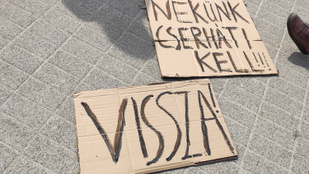 NEKÜNK
CSERHÁTI
KELL!!!
VISSZA!